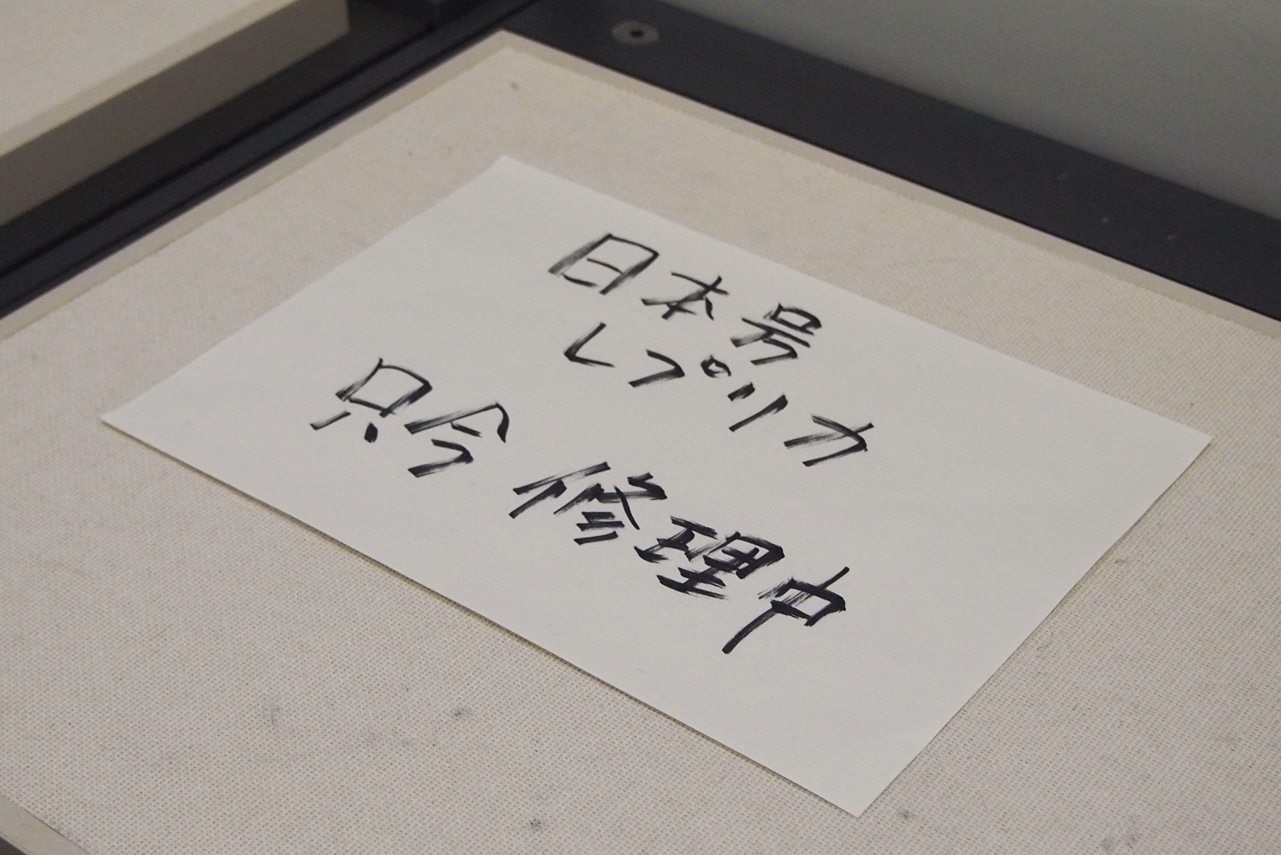 日本号
レプリカ
只今 修理中